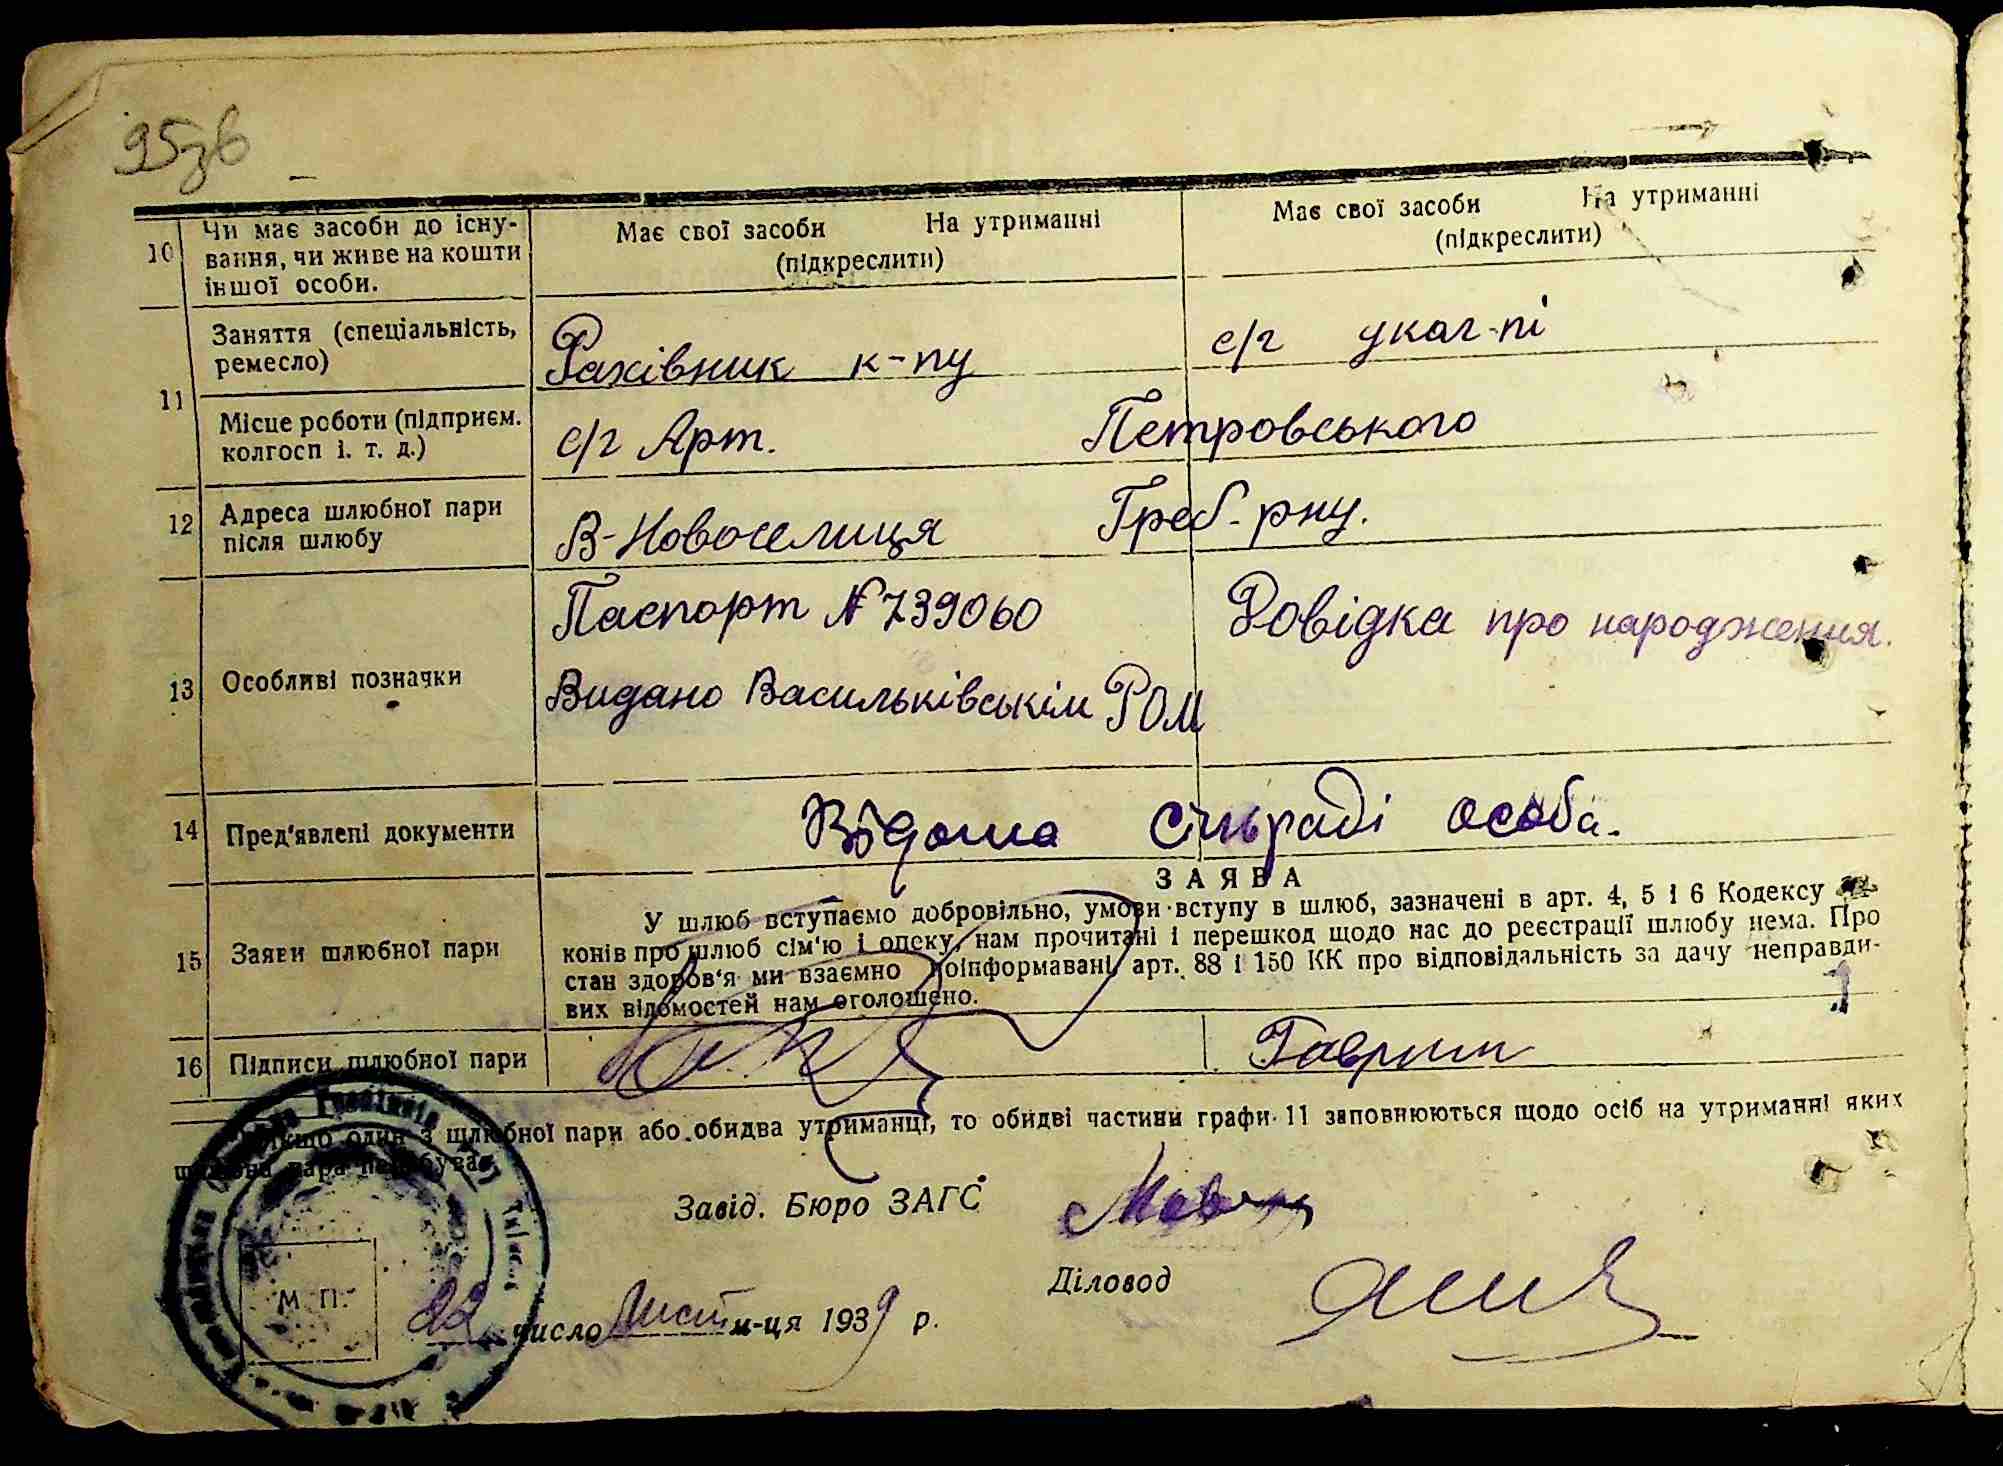 95зв
10 Чи має засоби до існу-
вання, чи живе на кошти
іншої особи.
Має свої засоби На утриманні
(підкреслити)
Має свої засоби На утриманні
(підкреслити)
11 Заняття (спеціальність,
ремесло)
Рахівник к-пу
с/г
Місце роботи (підприєм.
колгосп і. т. д.)
с/г Арт. Петровського
12 Адреса шлюбної пари
після шлюбу
В-Новоселиця Греб-рну.
13 Особливі позначки
Паспорт № 739060
Видано Васильківськім РОМ
Довідка про народження.
14 Пред'явлені документи
Відома сільраді особа.
15 Заяви шлюбної пари
ЗАЯВА
У шлюб вступаємо добровільно, умови вступу в шлюб, зазначені в арт. 4, 5 і 6 Кодексу за-
конів про шлюб сім'ю і опеку, нам прочитані і перешкод щодо нас до реєстрації шлюбу нема. Про
стан здоров'я ми взаємно поінформавані, арт. 88 і 150 КК про відповідальність за дачу неправди-
вих відомостей нам оголошено.
16 Підписи шлюбної пари
Гаврит
Якщо один з шлюбної пари або обидва утриманці, то обидві частини графи 11 заповнюються щодо осіб на утриманні яких
шлюбна пара перебуває
Завід. Бюро ЗАГС
Діловод
М. П.
22 число Лист м-ця 1939 р.